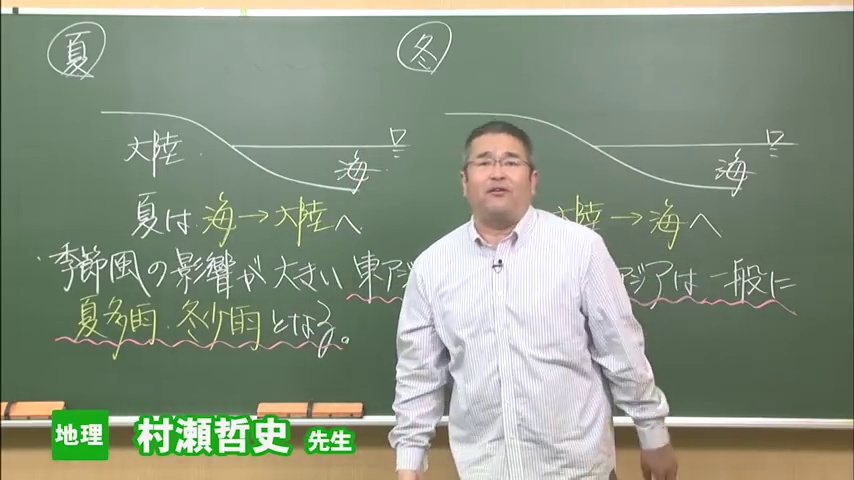 夏
冬
大陸
海
海
夏は 海→大陸へ
大陸→海へ
・季節風の影響が大きい 東アジアは一般に
夏多雨・冬少雨となる。
地理 村瀬哲史 先生